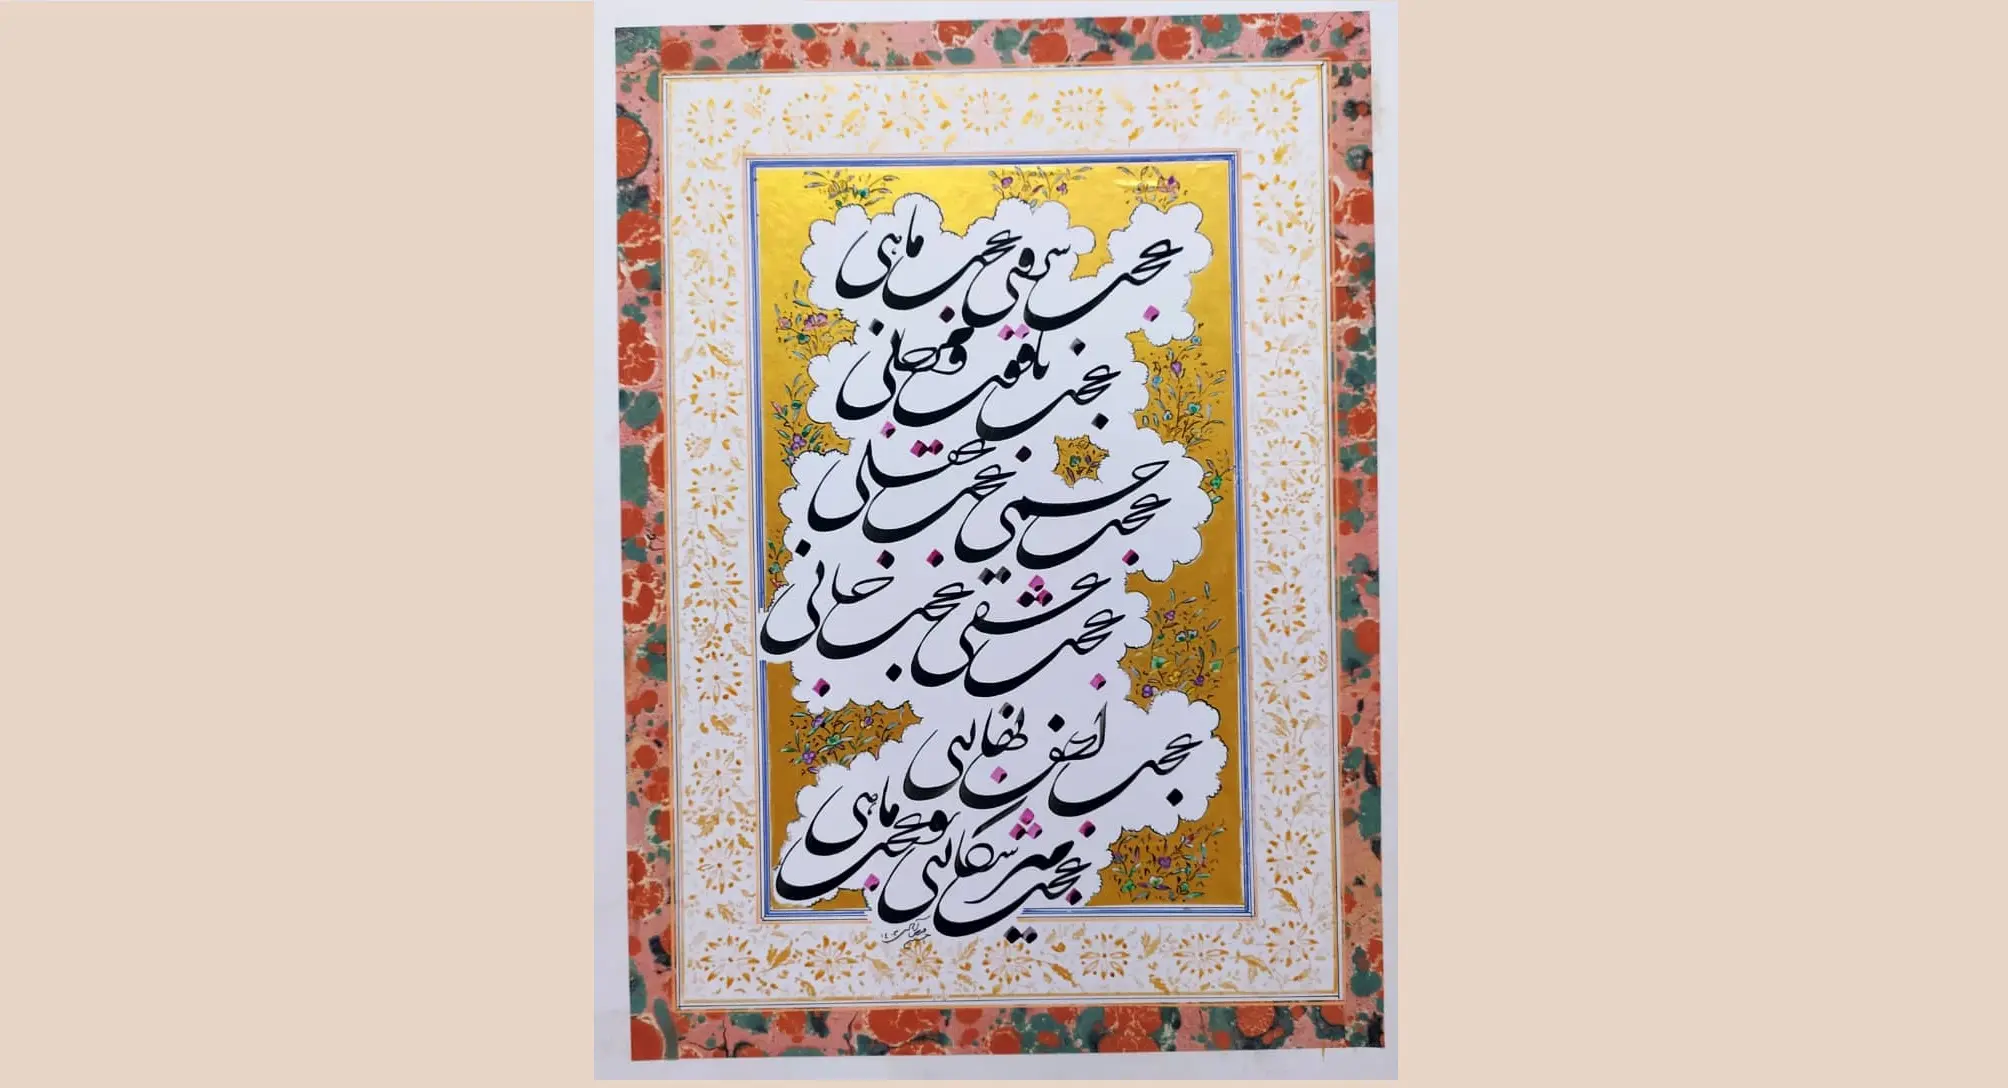 عجب سروی عجب ماهی
عجب یاقوت و مرجانی
عجب جسمی عجب عقلی
عجب عشقی عجب جانی
عجب لطف بهاری
عجب میر شکاری و عجب ماهی